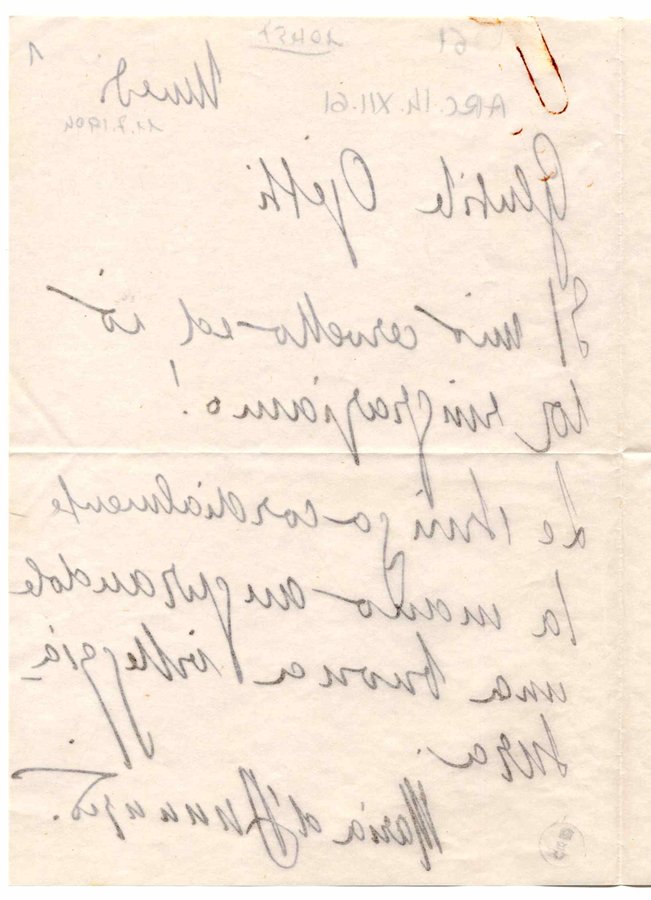 61 10457 1
Lunedì.
ARC. 14. XII. 61
11.7.1904
Gentile Ojetti
Il mio cervello ed io
La ringraziamo!
Le stringo cordialmente
la mano augurandole
una buona villeggia-
tura.
Maria d'Annunzio.